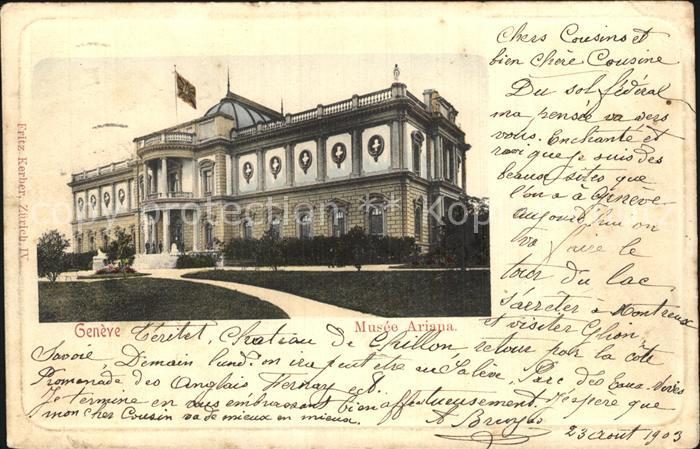 Chers Cousins et
bien chère Cousine
Du sol fédéral
ma pensée va vers
vous. Enchanté et
ravi que je suis des
beaux sites que
l'on a à Genève
aujourd'hui on
va faire le
tour du lac
s'arrêter à Montreux
et visiter Glion,
Territet, Chateau de Chillon retour par la côte
Savoie. Demain lundi on ira peut être au Salève, Parc des Eaux-Vives
Promenade des Anglais Fernay ect.
Je termine en vous embrassant bien affectueusement. J'espère que
mon cher Cousin va de mieux en mieux.
23 aout 1903
Genève
Musée Ariana.
Fritz Kerber, Zürich IV.